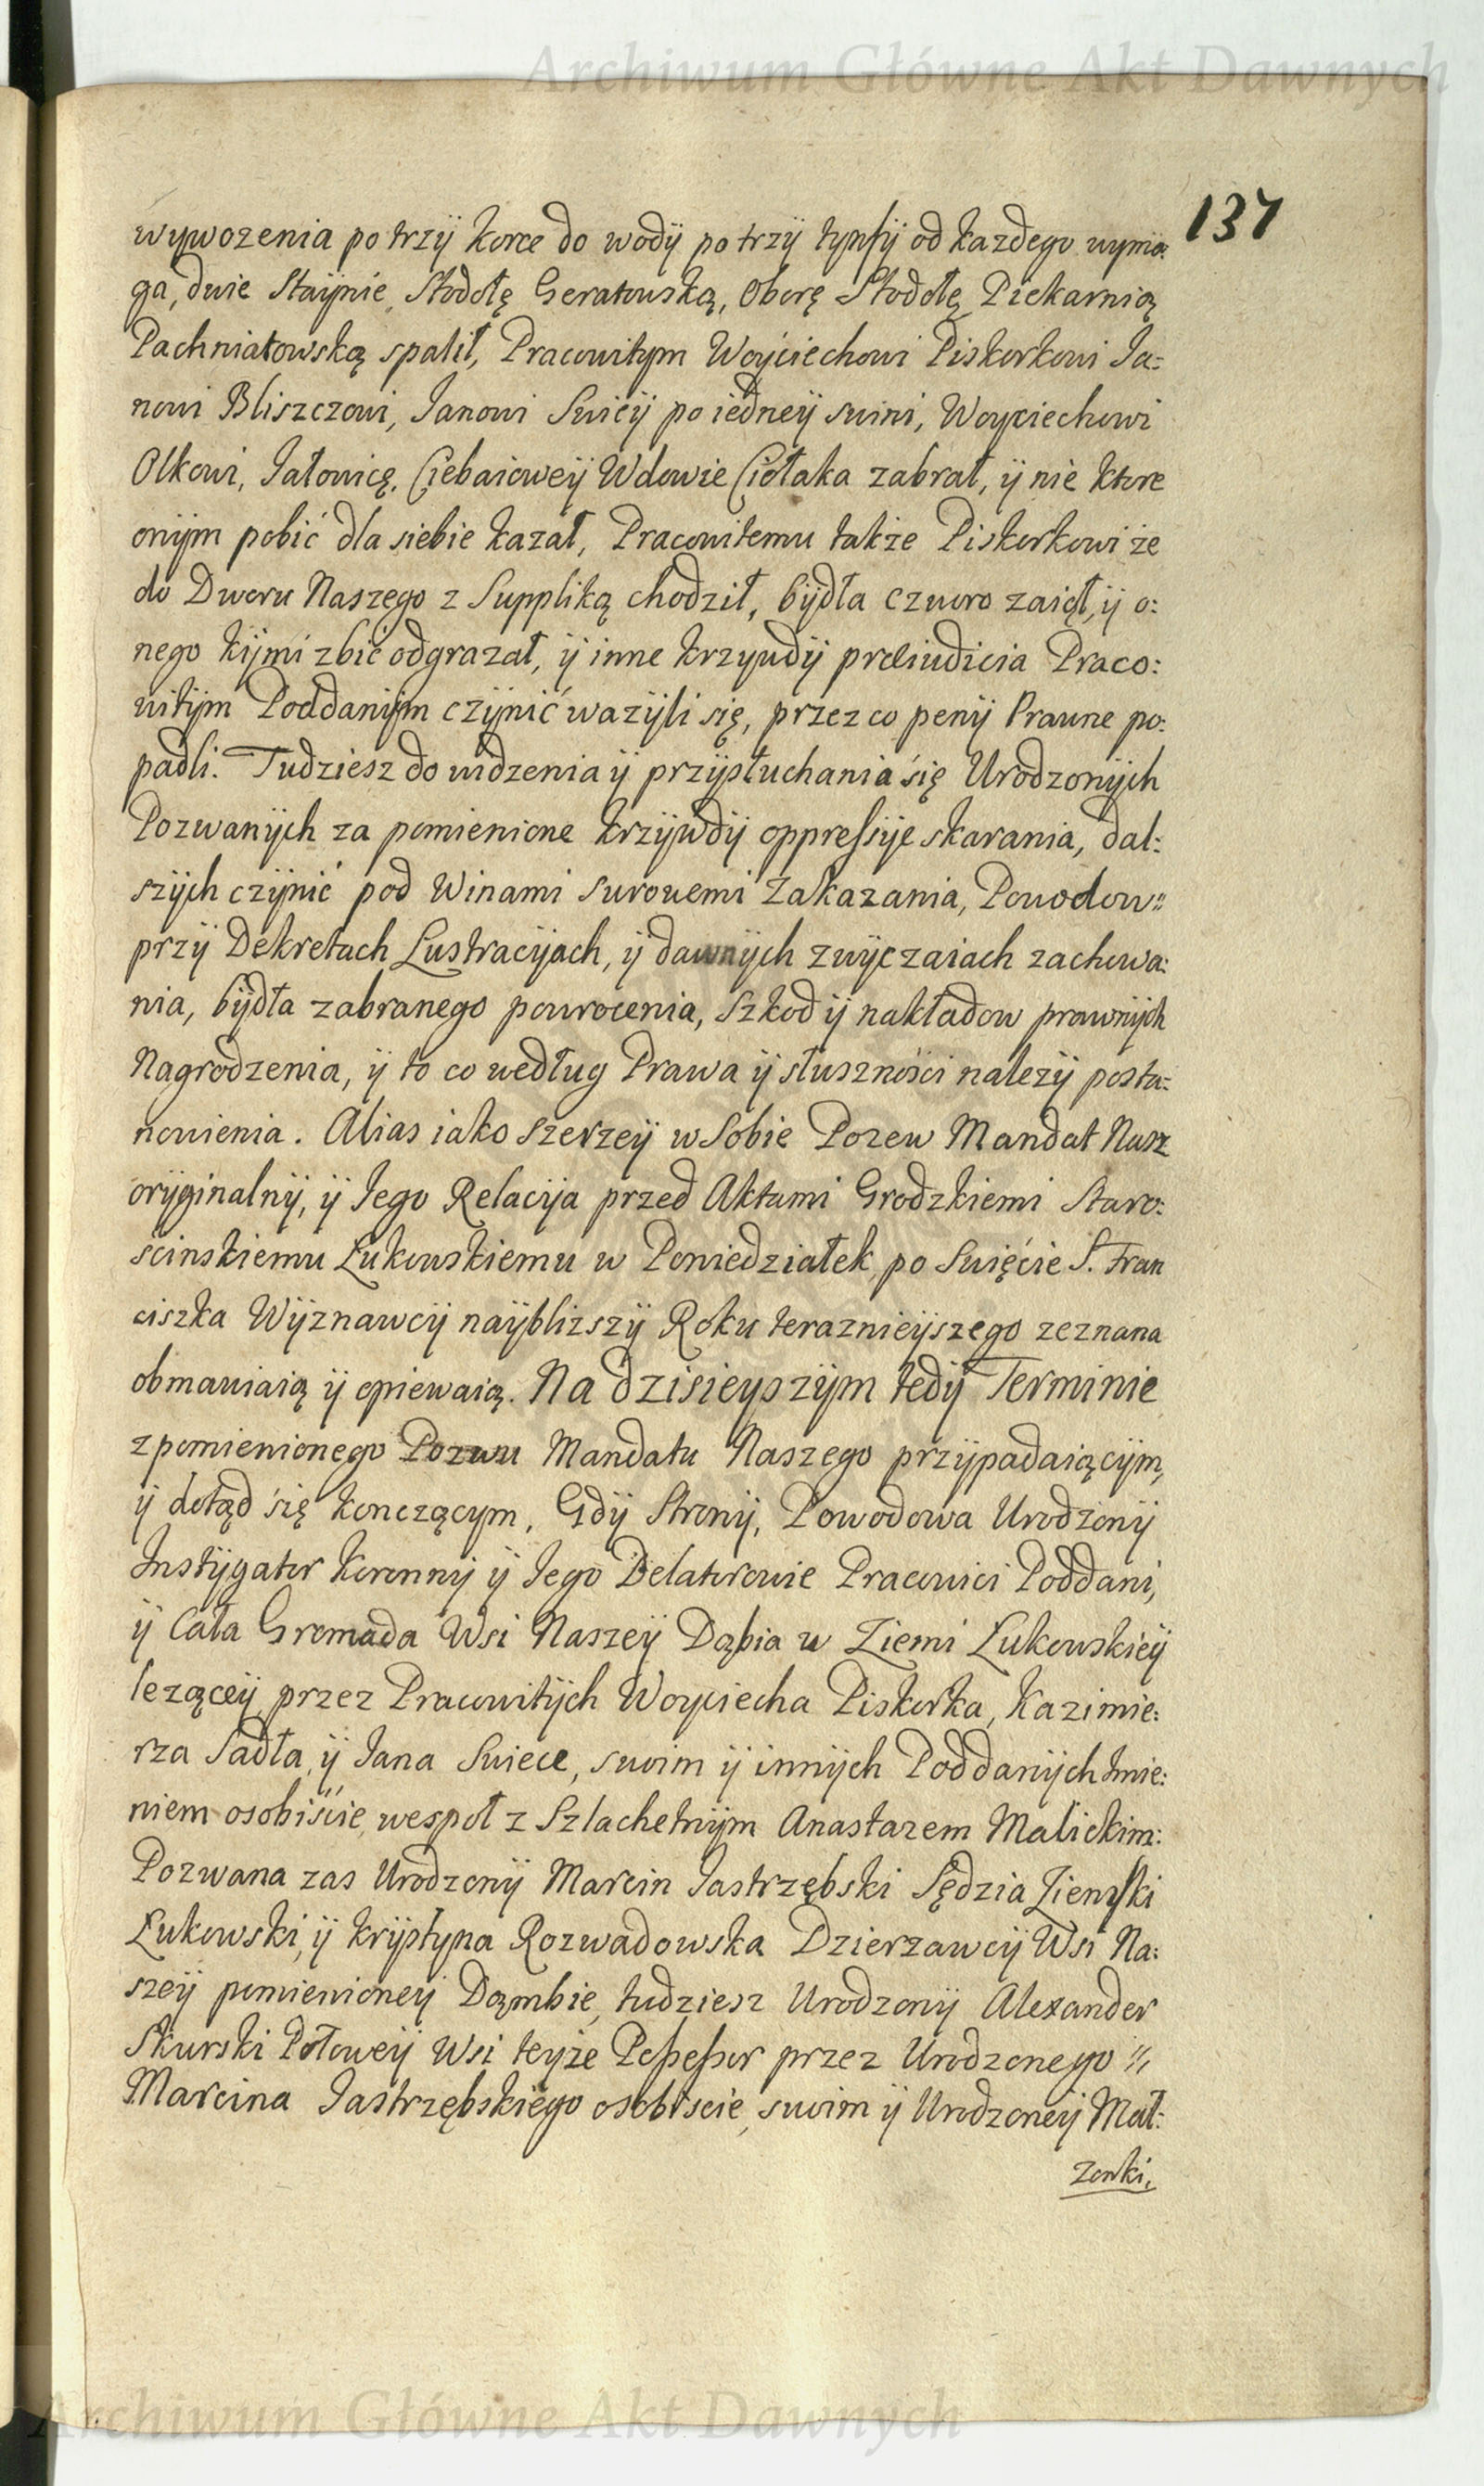 Archiwum Główne Akt Dawnych
137
wywozenia po trzÿ korce do wodÿ po trzÿ tynfÿ od kazdego wyma:
ga, dwie Staÿnie, Stodołę Geratowską, Oborę Stodołę Piekarnią
Pachniatowską spalił, Pracowitym Woÿciechowi Piskorkowi Ja:
nowi Bliszczowi, Janowi Swicÿ po iedneÿ swini, Woyciechowi
Olkowi, Jałowicę, Ciebaioweÿ Wdowie Ciołaka zabrał, ÿ nie ktore
onÿm pobić dla siebie kazał, Pracowitemu także Piskorkowi że
do Dworu Naszego z Suppliką chodził, bÿdła czworo zaiął, ÿ o:
nego kÿmi zbić odgrazał, ÿ inne krzywdÿ preiudicia Praco:
witÿm Poddanÿm czÿnić wazÿli się, przez co penÿ Prawne po:
padli. Tudziesz do widzenia ÿ przÿsłuchania się Urodzonÿch
Pozwanÿch za pomienione krzÿwdÿ oppressÿe skarania, dal:
szÿch czÿnić pod Winami surowemi Zakazania, Powodow:
przÿ Dekretach Lustracÿach, ÿ dawnÿch zwÿczaiach zachowa:
nia, bÿdła zabranego powrocenia, szkod ÿ nakładow prawnÿch
Nagrodzenia, ÿ to co według Prawa ÿ słuszności nalezÿ posta:
nowienia. Alias iako szerzeÿ w Sobie Pozew Mandat Nasz
orÿginalnÿ, ÿ Jego Relacÿa przed Aktami Grodzkiemi Staro:
ścinskiemu Łukowskiemu w Poniedziałek po Swięcie S. Fran
ciszka Wÿznawcÿ naÿblizszÿ Roku teraznieÿszego zeznana
obmawiaią ÿ opiewaią. Na dzisieyszÿm tedÿ Terminie
z pomienionego Pozwu Mandatu Naszego przÿpadaiącÿm,
ÿ dotąd się konczącym, Gdÿ Stronÿ, Powodowa Urodzonÿ
Instÿgator Koronnÿ ÿ Jego Delatorowie Pracowici Poddani,
ÿ Cała Gromada Wsi Naszeÿ Dąbia w Ziemi Łukowskieÿ
leząceÿ, przez Pracowitÿch Woyciecha Piskorka, Kazimie:
rza Sadła, ÿ Jana Swiece, swoim ÿ innÿch Poddanÿch Jmie:
niem osobiście, wespoł z Szlachetnÿm Anastazem Malickim:
Pozwana zas Urodzonÿ Marcin Jastrzębski Sędzia Ziemski
Łukowski, ÿ Krÿstyna Rozwadowska Dzierzawcÿ Wsi Na:
szeÿ pomienioneÿ Dąmbie, tudziesz Urodzonÿ Alexander
Skurski Połoweÿ Wsi teyże Possessor przez Urodzonego
Marcina Jastrzębskiego osobiscie, swoim ÿ Urodzoneÿ Mał:
zonki,
Archiwum Główne Akt Dawnych